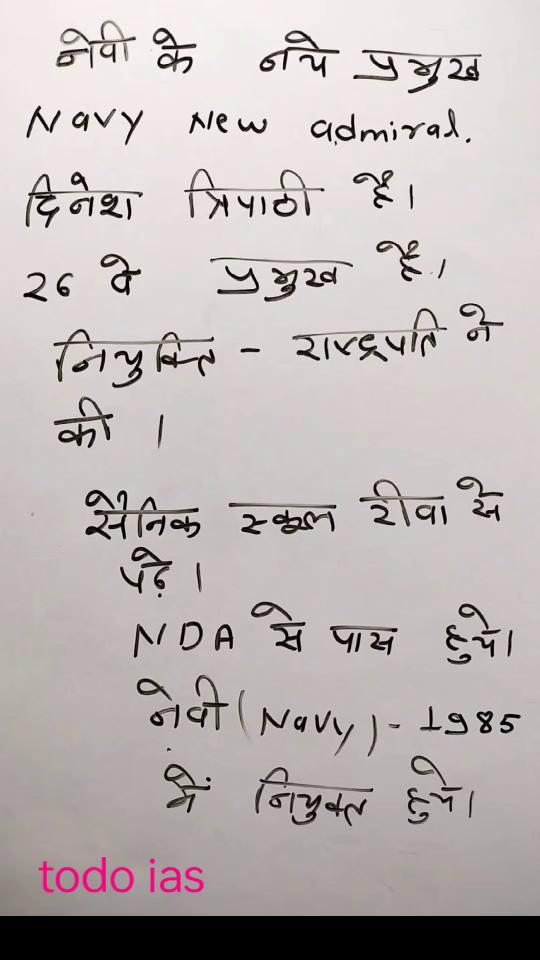 नेवी के नये प्रमुख
Navy New admiral.
दिनेश त्रिपाठी है।
26 वे प्रमुख है।
नियुक्ति - राष्ट्रपति ने
की ।
सैनिक स्कूल रीवा से
पढ़े ।
NDA से पास हुये।
नेवी (Navy) - 1985
में नियुक्त हुये।
todo ias